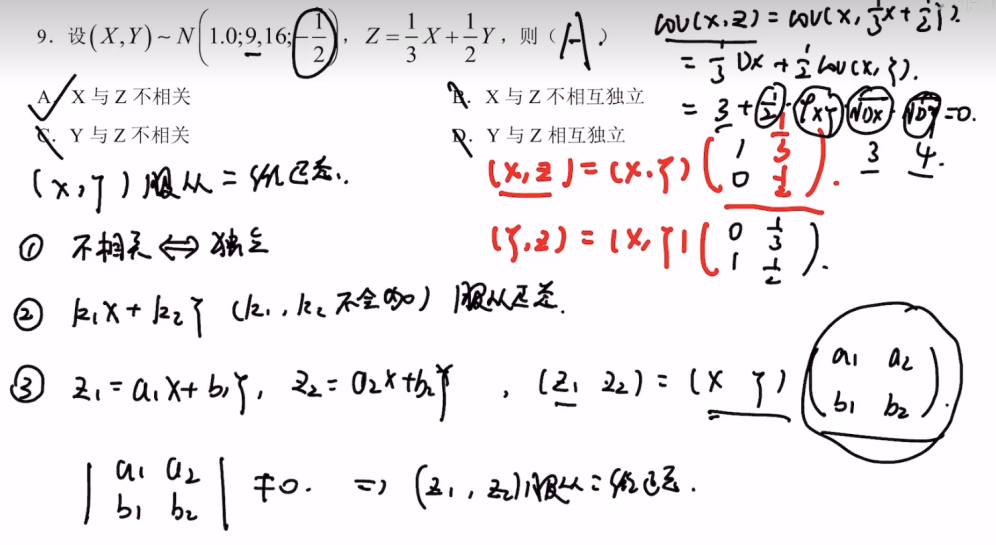 9. 设(X,Y)~N(1.0;9,16;-1/2), Z=1/3X+1/2Y, 则( A )
A. X 与 Z 不相关
B. X 与 Z 不相互独立
C. Y 与 Z 不相关
D. Y 与 Z 相互独立
cov(X,Z) = cov(X, 1/3X + 1/2Y).
= 1/3 DX + 1/2 cov(X,Y).
= 3 + 1/2 · ρXY · √DX · √DY = 0.
3 4.
(X,Z) = (X,Y) (1 1/3
0 1/2).
(Y,Z) = (X,Y) (0 1/3
1 1/2).
(X,Y) 服从二维正态.
① 不相关 ⇔ 独立
② k₁X + k₂Y (k₁, k₂ 不全为0) 服从正态.
③ Z₁ = a₁X + b₁Y, Z₂ = a₂X + b₂Y, (Z₁ Z₂) = (X Y) (a₁ a₂
b₁ b₂).
| a₁ a₂
b₁ b₂ | ≠ 0. ⇒ (Z₁, Z₂) 服从二维正态.